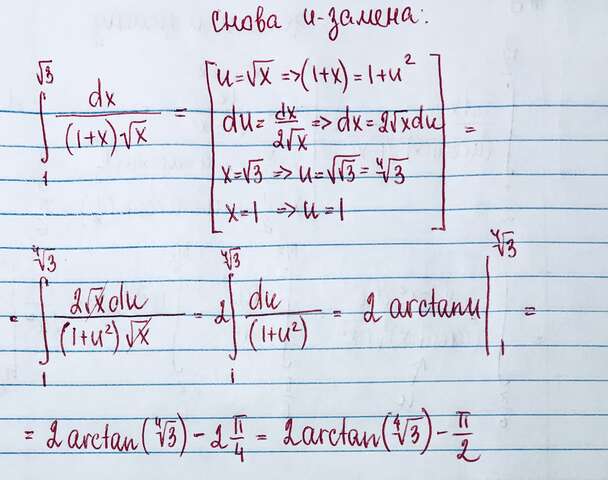 снова u-замена:
∫₁^√3 dx / ((1+x)√x) = [ u=√x => (1+x) = 1+u²
du = dx / 2√x => dx = 2√x du
x=√3 => u=√√3 = ⁴√3
x=1 => u=1 ] =
= ∫₁^⁴√3 2√x du / ((1+u²)√x) = 2 ∫₁^⁴√3 du / (1+u²) = 2 arctan u |₁^⁴√3 =
= 2 arctan(⁴√3) - 2 π/4 = 2 arctan(⁴√3) - π/2